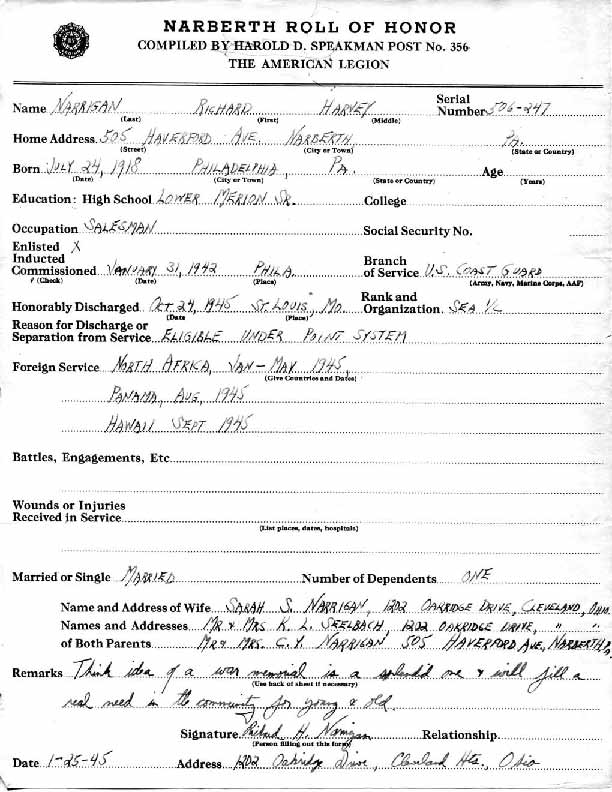 NARBERTH ROLL OF HONOR
COMPILED BY HAROLD D. SPEAKMAN POST No. 356
THE AMERICAN LEGION
Name NARRIGAN RICHARD HARVEY Serial Number 506-247
(Last) (First) (Middle)
Home Address 505 HAVERFORD AVE. NARBERTH, PA.
(Street) (City or Town) (State or Country)
Born JULY 24, 1918 PHILADELPHIA, PA. Age
(Date) (City or Town) (State or Country) (Years)
Education: High School LOWER MERION SR. College
Occupation SALESMAN Social Security No.
Enlisted X
Inducted Branch
Commissioned JANUARY 31, 1942 PHILA. of Service U.S. COAST GUARD
(Check) (Date) (Place) (Army, Navy, Marine Corps, AAF)
Honorably Discharged OCT 24, 1945 ST. LOUIS, MO. Rank and Organization SEA 1/C
(Date (Place)
Reason for Discharge or
Separation from Service ELIGIBLE UNDER POINT SYSTEM
Foreign Service NORTH AFRICA, JAN-MAY 1945,
(Give Countries and Dates)
PANAMA, AUG, 1945
HAWAII SEPT 1945
Battles, Engagements, Etc
Wounds or Injuries
Received in Service
(List places, dates, hospitals)
Married or Single MARRIED Number of Dependents ONE
Name and Address of Wife SARAH S. NARRIGAN, 1202 OAKRIDGE DRIVE, CLEVELAND, OHIO.
Names and Addresses MR & MRS K. L. SEELBACH, 1202 OAKRIDGE DRIVE, " "
of Both Parents MR & MRS. C. Y. NARRIGAN 505 HAVERFORD AVE, NARBERTH, PA.
Remarks Think idea of a war memorial is a splendid one & will fill a
(Use back of sheet if necessary)
real need in the community for young & old.
Signature Richard H. Narrigan Relationship
(Person filling out this form)
Date 1-25-45 Address 1202 Oakridge Drive, Cleveland Hts., Ohio